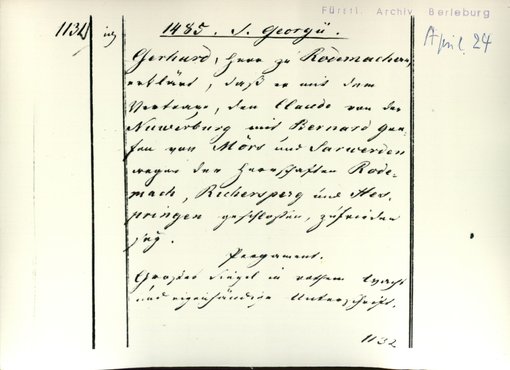 Fürstl. Archiv Berleburg
April 24
1132
1485. S. Georgii.
Gerhard, Herr zu Rodemachern,
erklärt, daß er mit dem
Vertrage, den Claude von der
Nuwerburg mit Bernard Gra-
fen von Mörs und Sarwerden
wegen der Herrschaften Rode-
mach, Richersperg und Hes-
pringen geschlossen, zufrieden
sey.
Pergament.
Großes Siegel in rothem Wachs
und eigenhändige Unterschrift.
1132